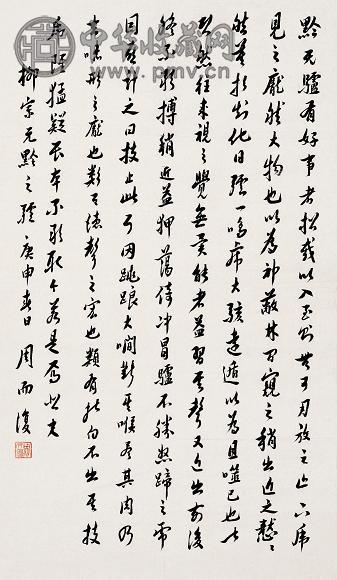 中华收藏网
www.pmv.cn
黔无驢有好事者船载以入至則無可用放之山下虎
見之龐然大物也以為神蔽林間窺之稍出近之慭慭
然莫相知他日驢一鳴虎大駭遠遁以為且噬己也甚
恐然往来視之覺無異能者益習其聲又近出前後
終不敢搏稍近益狎蕩倚冲冒驢不勝怒蹄之虎
因喜計之曰技止此耳因跳踉大㘎斷其喉盡其肉乃
去噫形之龐也類有德聲之宏也類有能向不出其技
虎雖猛疑畏卒不敢取今若是焉悲夫
柳宗元黔之驢 庚申春日 周而復